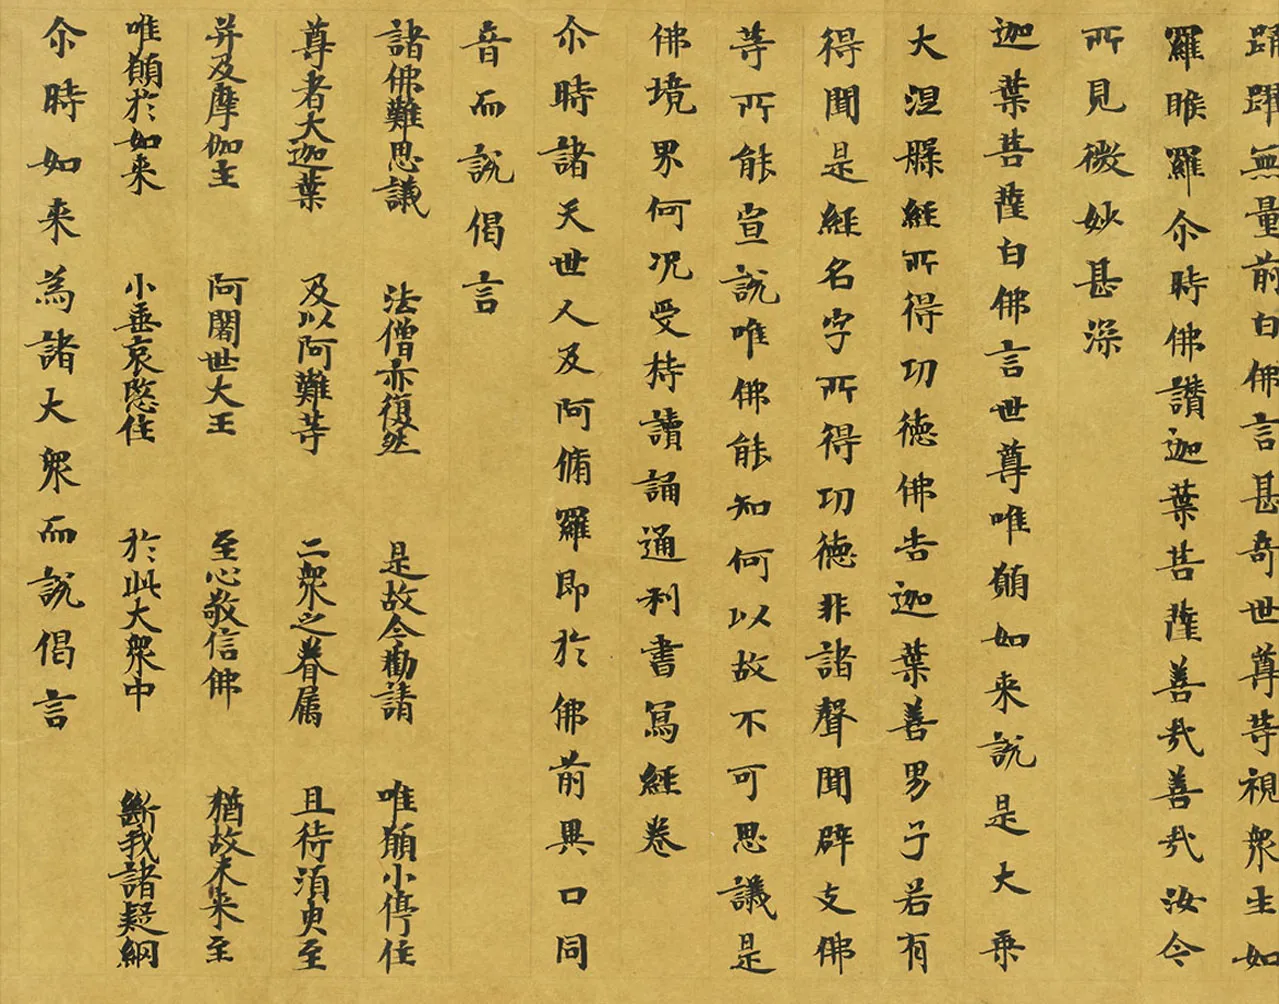 踊躍無量前白佛言甚奇世尊等視衆生如
羅睺羅尒時佛讚迦葉菩薩善㢤善㢤汝今
所見微妙甚深
迦葉菩薩白佛言世尊唯願如来説是大乗
大涅槃經所得功德佛告迦葉善男子若有
得聞是經名字所得功德非諸聲聞辟支佛
等所能宣説唯佛能知何以故不可思議是
佛境界何况受持讀誦通利書寫經卷
尒時諸天世人及阿脩羅即於佛前異口同
音而説偈言
諸佛難思議 法僧亦復然 是故今勸請 唯願小停住
尊者大迦葉 及以阿難等 二衆之眷属 且待須臾至
并及摩伽主 阿闍世大王 至心敬信佛 猶故未来至
唯願於如来 小垂哀愍住 於此大衆中 斷我諸疑網
尒時如来為諸大衆而説偈言